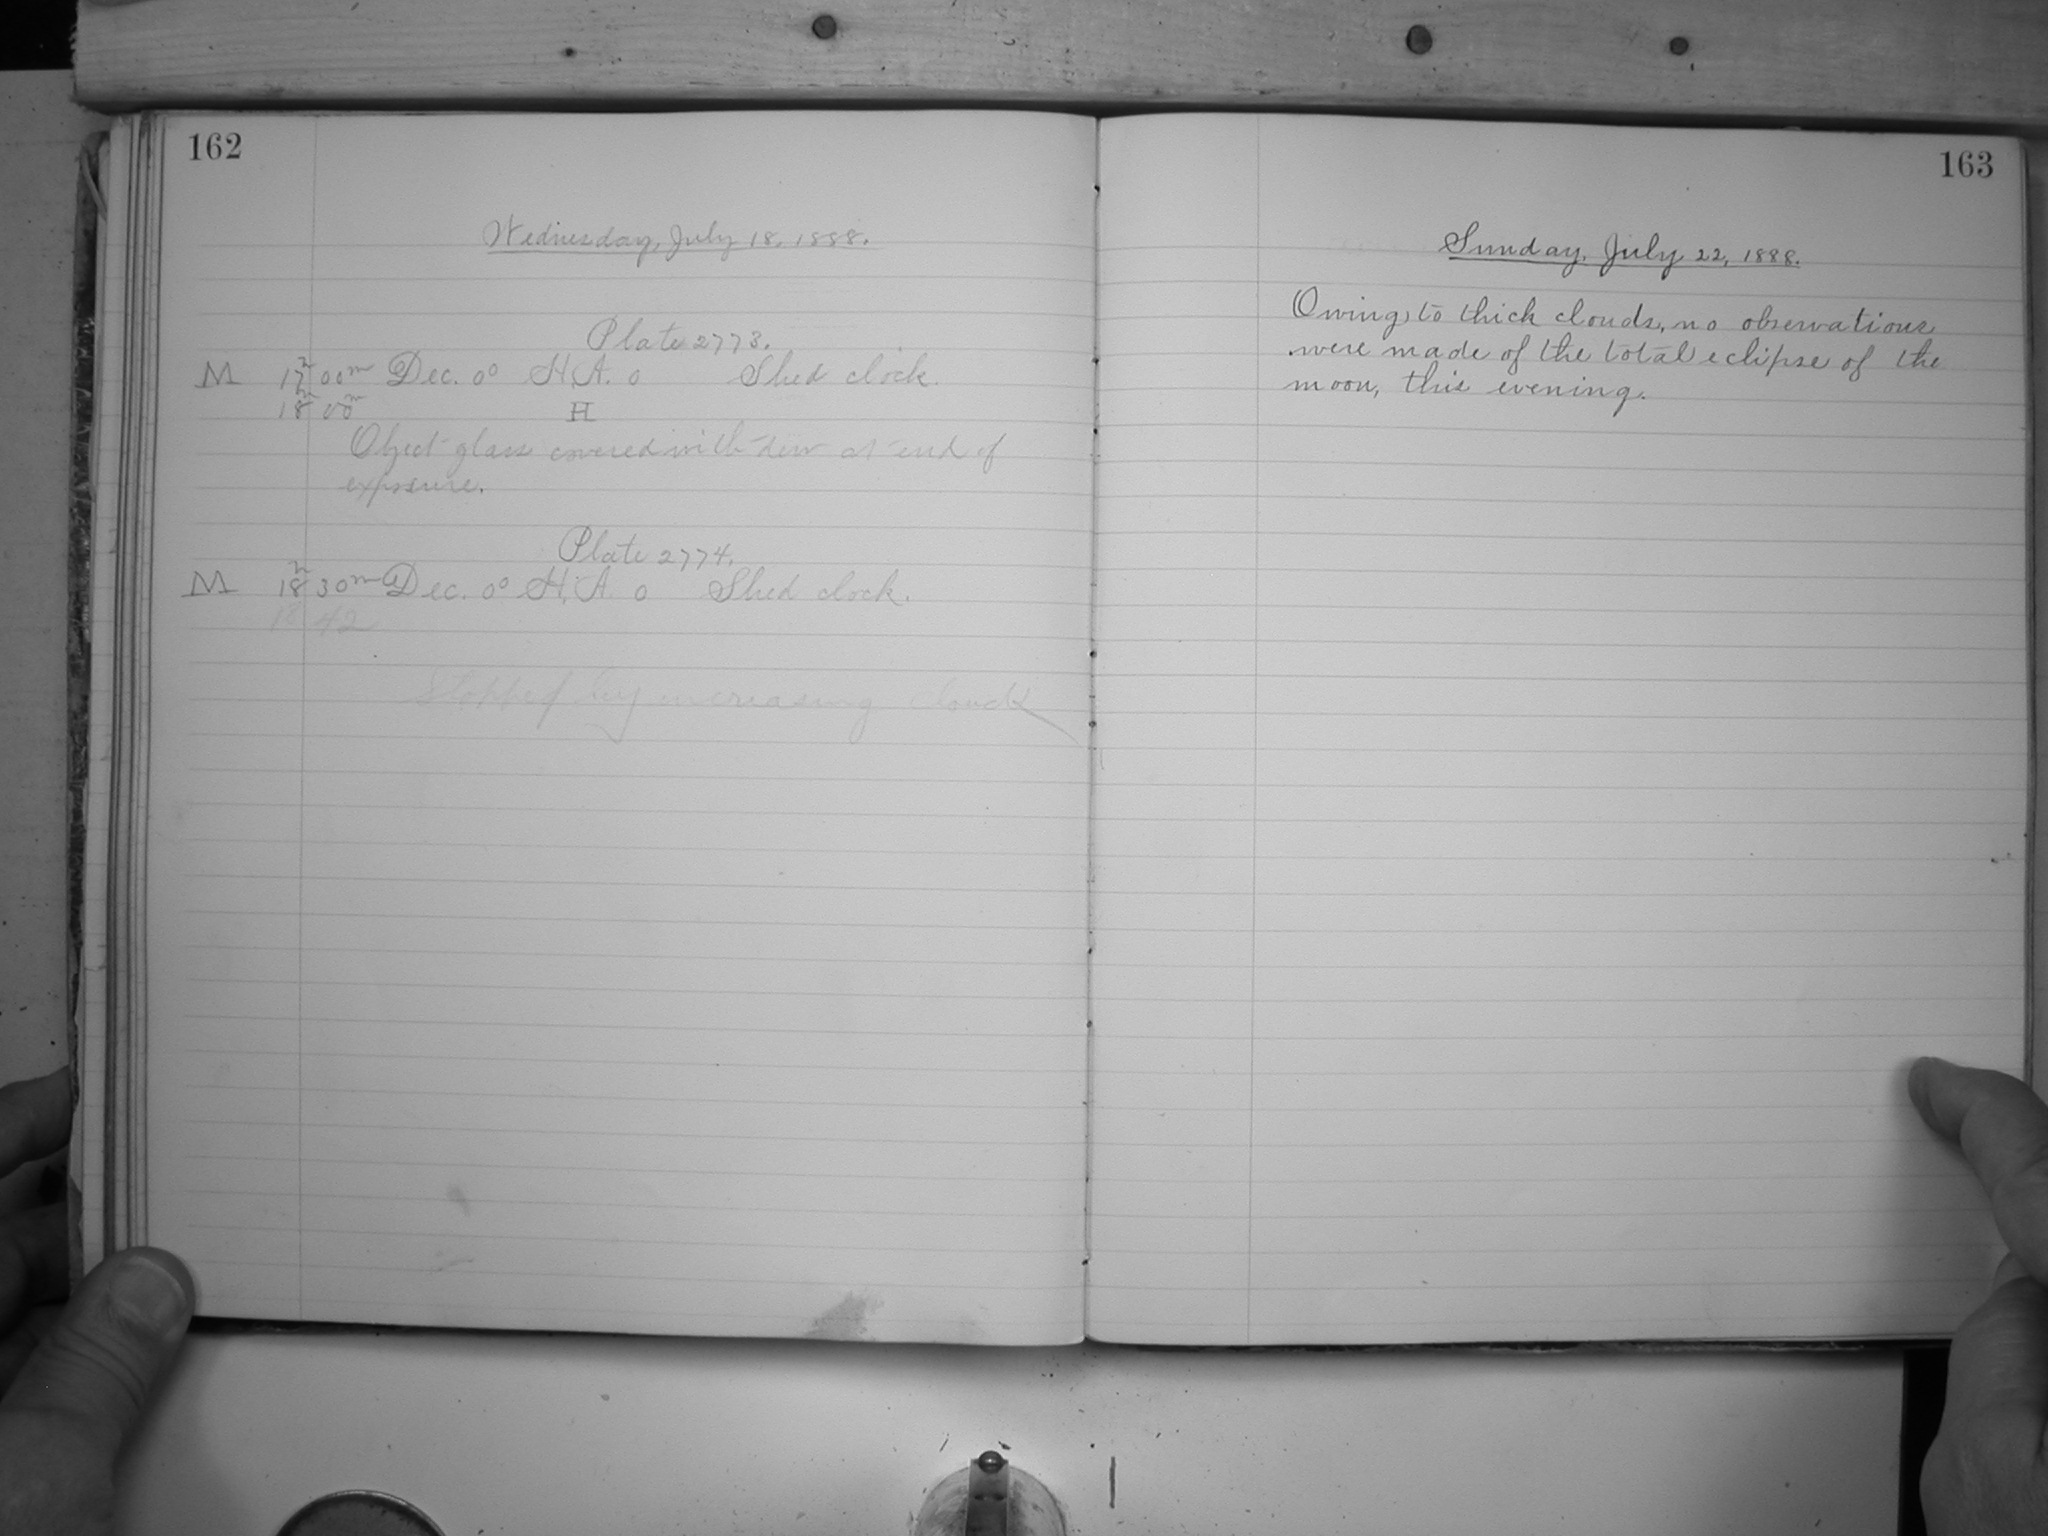 162
Wednesday, July 18, 1888.
Plate 2773.
M 17h 00m Dec. 0° H.A. 0 Shed clock.
18h 00m H
Object glass covered with dew at end of
exposure.
Plate 2774.
M 18h 30m Dec. 0° H.A. 0 Shed clock.
18 42
Stopped by increasing clouds
163
Sunday, July 22, 1888.
Owing to thick clouds, no observations
were made of the total eclipse of the
moon, this evening.